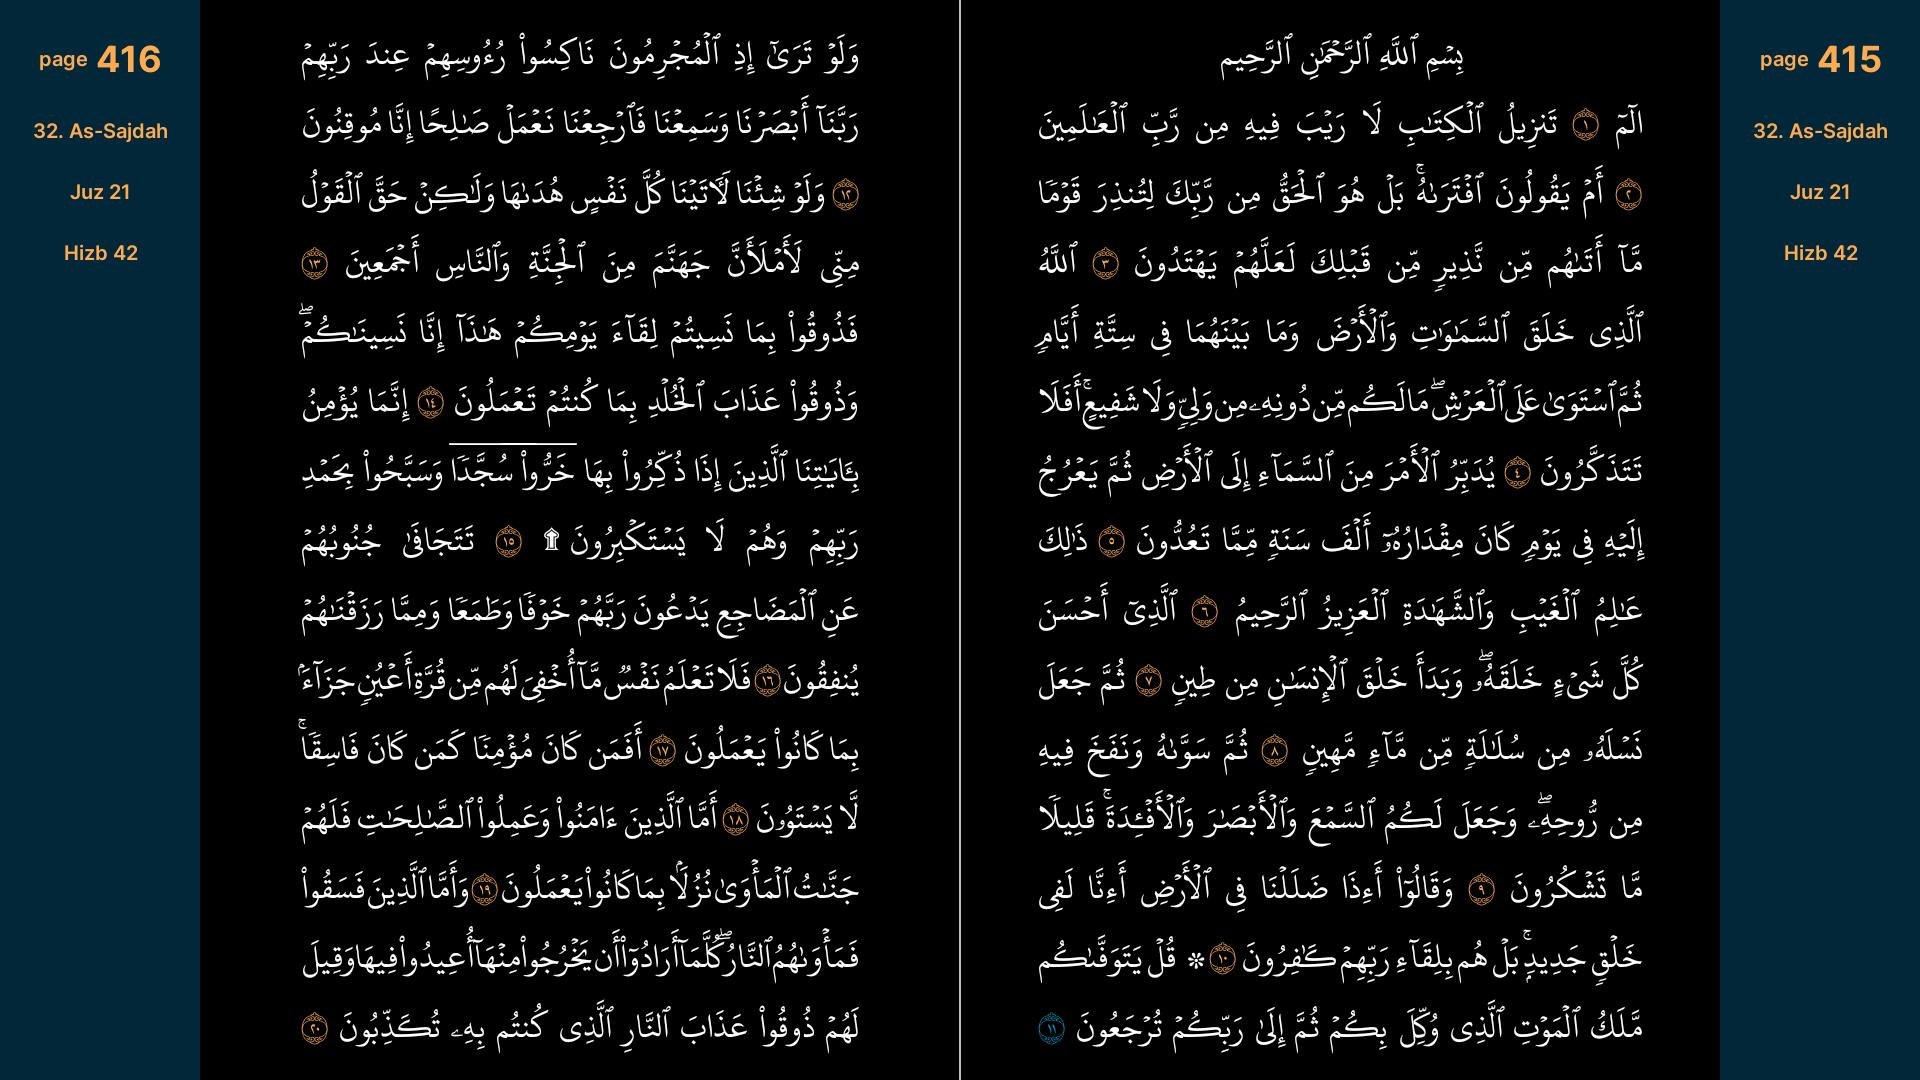 page 415
32. As-Sajdah
Juz 21
Hizb 42
بِسْمِ ٱللَّهِ ٱلرَّحْمَٰنِ ٱلرَّحِيمِ
الٓمٓ ١ تَنزِيلُ ٱلْكِتَٰبِ لَا رَيْبَ فِيهِ مِن رَّبِّ ٱلْعَٰلَمِينَ
٢ أَمْ يَقُولُونَ ٱفْتَرَىٰهُ ۚ بَلْ هُوَ ٱلْحَقُّ مِن رَّبِّكَ لِتُنذِرَ قَوْمًا
مَّآ أَتَىٰهُم مِّن نَّذِيرٍ مِّن قَبْلِكَ لَعَلَّهُمْ يَهْتَدُونَ ٣ ٱللَّهُ
ٱلَّذِى خَلَقَ ٱلسَّمَٰوَٰتِ وَٱلْأَرْضَ وَمَا بَيْنَهُمَا فِى سِتَّةِ أَيَّامٍ
ثُمَّ ٱسْتَوَىٰ عَلَى ٱلْعَرْشِ ۖ مَا لَكُم مِّن دُونِهِۦ مِن وَلِىٍّ وَلَا شَفِيعٍ ۚ أَفَلَا
تَتَذَكَّرُونَ ٤ يُدَبِّرُ ٱلْأَمْرَ مِنَ ٱلسَّمَآءِ إِلَى ٱلْأَرْضِ ثُمَّ يَعْرُجُ
إِلَيْهِ فِى يَوْمٍ كَانَ مِقْدَارُهُۥٓ أَلْفَ سَنَةٍ مِّمَّا تَعُدُّونَ ٥ ذَٰلِكَ
عَٰلِمُ ٱلْغَيْبِ وَٱلشَّهَٰدَةِ ٱلْعَزِيزُ ٱلرَّحِيمُ ٦ ٱلَّذِىٓ أَحْسَنَ
كُلَّ شَىْءٍ خَلَقَهُۥ ۖ وَبَدَأَ خَلْقَ ٱلْإِنسَٰنِ مِن طِينٍ ٧ ثُمَّ جَعَلَ
نَسْلَهُۥ مِن سُلَٰلَةٍ مِّن مَّآءٍ مَّهِينٍ ٨ ثُمَّ سَوَّىٰهُ وَنَفَخَ فِيهِ
مِن رُّوحِهِۦ ۖ وَجَعَلَ لَكُمُ ٱلسَّمْعَ وَٱلْأَبْصَٰرَ وَٱلْأَفْـِٔدَةَ ۚ قَلِيلًا
مَّا تَشْكُرُونَ ٩ وَقَالُوٓا۟ أَءِذَا ضَلَلْنَا فِى ٱلْأَرْضِ أَءِنَّا لَفِى
خَلْقٍ جَدِيدٍۭ ۚ بَلْ هُم بِلِقَآءِ رَبِّهِمْ كَٰفِرُونَ ١٠ ✻ قُلْ يَتَوَفَّىٰكُم
مَّلَكُ ٱلْمَوْتِ ٱلَّذِى وُكِّلَ بِكُمْ ثُمَّ إِلَىٰ رَبِّكُمْ تُرْجَعُونَ ١١
page 416
32. As-Sajdah
Juz 21
Hizb 42
وَلَوْ تَرَىٰٓ إِذِ ٱلْمُجْرِمُونَ نَاكِسُوا۟ رُءُوسِهِمْ عِندَ رَبِّهِمْ
رَبَّنَآ أَبْصَرْنَا وَسَمِعْنَا فَٱرْجِعْنَا نَعْمَلْ صَٰلِحًا إِنَّا مُوقِنُونَ
١٢ وَلَوْ شِئْنَا لَءَاتَيْنَا كُلَّ نَفْسٍ هُدَىٰهَا وَلَٰكِنْ حَقَّ ٱلْقَوْلُ
مِنِّى لَأَمْلَأَنَّ جَهَنَّمَ مِنَ ٱلْجِنَّةِ وَٱلنَّاسِ أَجْمَعِينَ ١٣
فَذُوقُوا۟ بِمَا نَسِيتُمْ لِقَآءَ يَوْمِكُمْ هَٰذَآ إِنَّا نَسِينَٰكُمْ ۖ
وَذُوقُوا۟ عَذَابَ ٱلْخُلْدِ بِمَا كُنتُمْ تَعْمَلُونَ ١٤ إِنَّمَا يُؤْمِنُ
بِـَٔايَٰتِنَا ٱلَّذِينَ إِذَا ذُكِّرُوا۟ بِهَا خَرُّوا۟ سُجَّدًا وَسَبَّحُوا۟ بِحَمْدِ
رَبِّهِمْ وَهُمْ لَا يَسْتَكْبِرُونَ ۩ ١٥ تَتَجَافَىٰ جُنُوبُهُمْ
عَنِ ٱلْمَضَاجِعِ يَدْعُونَ رَبَّهُمْ خَوْفًا وَطَمَعًا وَمِمَّا رَزَقْنَٰهُمْ
يُنفِقُونَ ١٦ فَلَا تَعْلَمُ نَفْسٌ مَّآ أُخْفِىَ لَهُم مِّن قُرَّةِ أَعْيُنٍ جَزَآءًۢ
بِمَا كَانُوا۟ يَعْمَلُونَ ١٧ أَفَمَن كَانَ مُؤْمِنًا كَمَن كَانَ فَاسِقًا ۚ
لَّا يَسْتَوُۥنَ ١٨ أَمَّا ٱلَّذِينَ ءَامَنُوا۟ وَعَمِلُوا۟ ٱلصَّٰلِحَٰتِ فَلَهُمْ
جَنَّٰتُ ٱلْمَأْوَىٰ نُزُلًۢا بِمَا كَانُوا۟ يَعْمَلُونَ ١٩ وَأَمَّا ٱلَّذِينَ فَسَقُوا۟
فَمَأْوَىٰهُمُ ٱلنَّارُ ۖ كُلَّمَآ أَرَادُوٓا۟ أَن يَخْرُجُوا۟ مِنْهَآ أُعِيدُوا۟ فِيهَا وَقِيلَ
لَهُمْ ذُوقُوا۟ عَذَابَ ٱلنَّارِ ٱلَّذِى كُنتُم بِهِۦ تُكَذِّبُونَ ٢٠